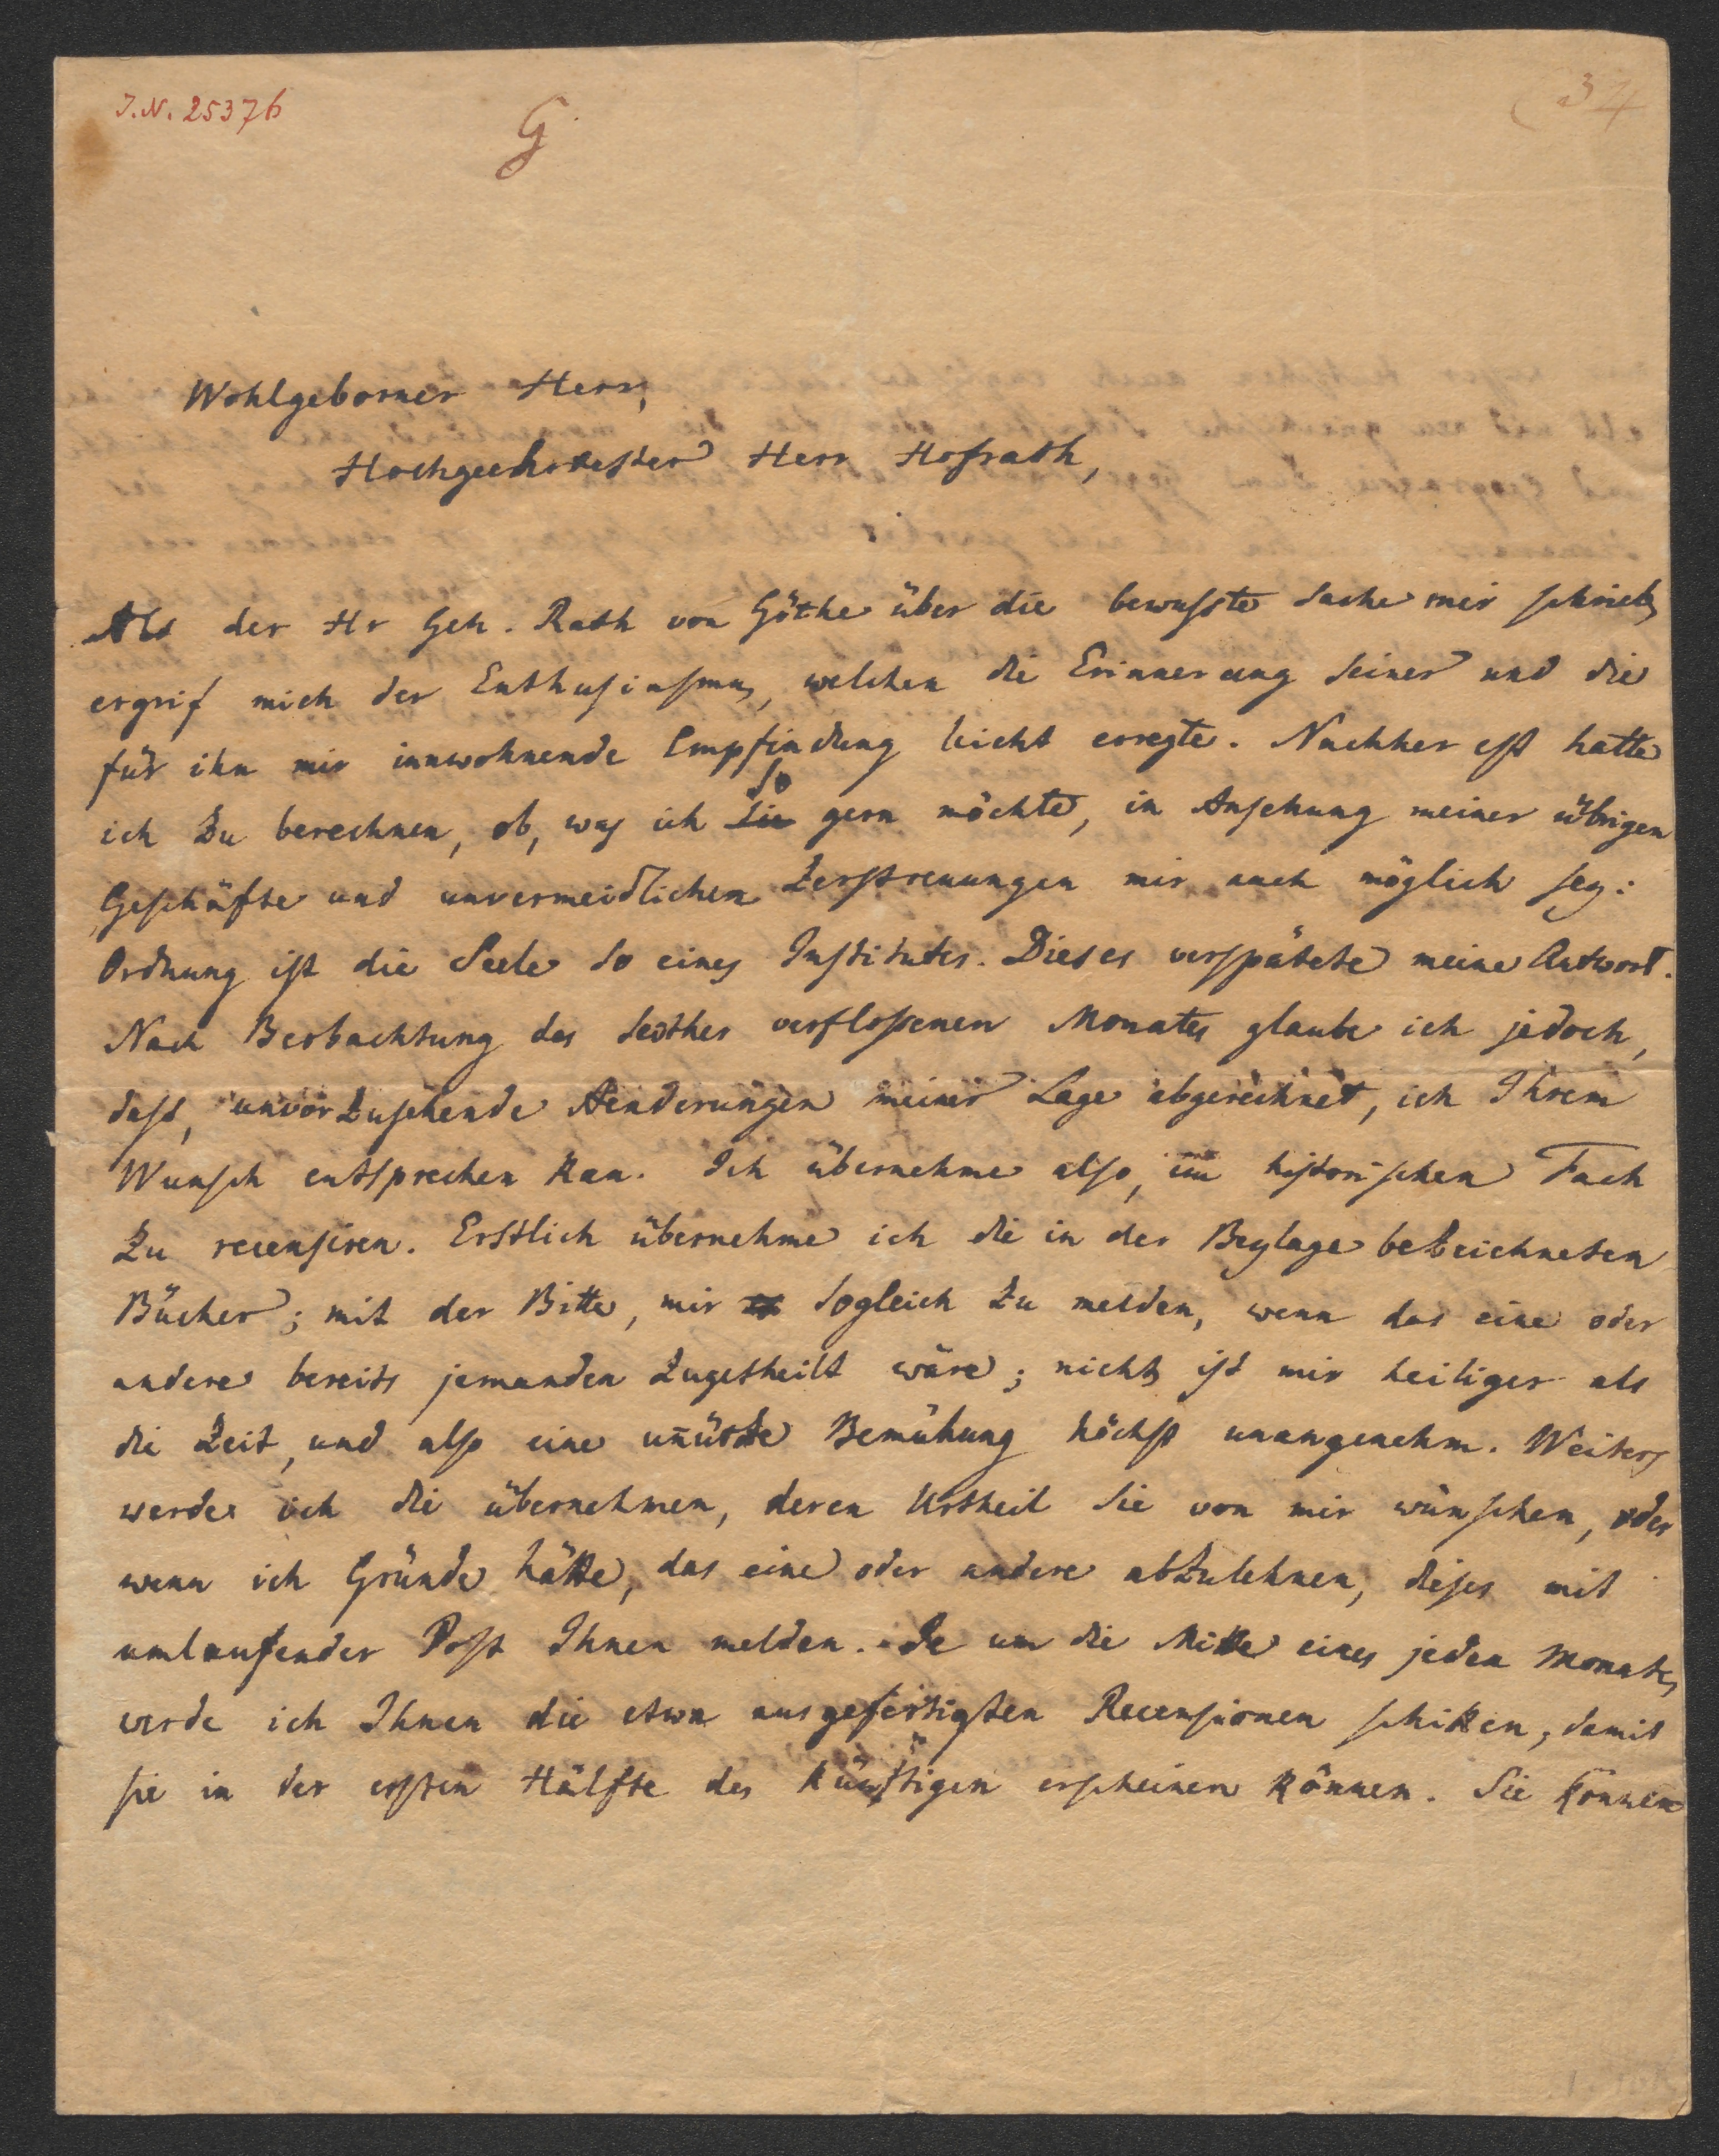 J.N. 25376
G
34
Wohlgeborner Herr,
Hochgeehrtester Herr Hofrath,
Als der Hr Geh. Rath von Göthe über die bewusste Sache mir schrieb,
ergrif mich der Enthusiasmus, welchen die Erinnerung seiner und die
für ihn mir innwohnende Empfindung leicht erregte. Nachher erst hatte
so
ich zu berechnen, ob, was ich sie gern möchte, in Ansehung meiner übrigen
Geschäfte und unvermeidlichen Zerstreuungen mir auch möglich sey:
Ordnung ist die Seele so eines Institutes. Dieses verspätete meine Antwort.
Nach Beobachtung des seither verflossenen Monates glaube ich jedoch,
dass, unvorzusehende Aenderungen meiner Lage abgerechnet, ich Ihrem
Wunsch entsprechen kan. Ich übernehme also, im historischen Fach
zu recensiren. Erstlich übernehme ich die in der Beylage bezeichneten
Bücher; mit der Bitte, mir sogleich zu melden, wenn das eine oder
andere bereits jemanden zugetheilt wäre; nichts ist mir heiliger als
die Zeit, und also eine unnütze Bemühung höchst unangenehm. Weiters
werde ich die übernehmen, deren Urtheil Sie von mir wünschen, oder
wenn ich Gründe hätte, das eine oder andere abzulehnen, dieses mit
umlaufender Post Ihnen melden. Je um die Mitte eines jeden Monats
werde ich Ihnen die etwa ausgefertigten Recensionen schikken, damit
sie in der ersten Hälfte des künftigen erscheinen können. Sie können